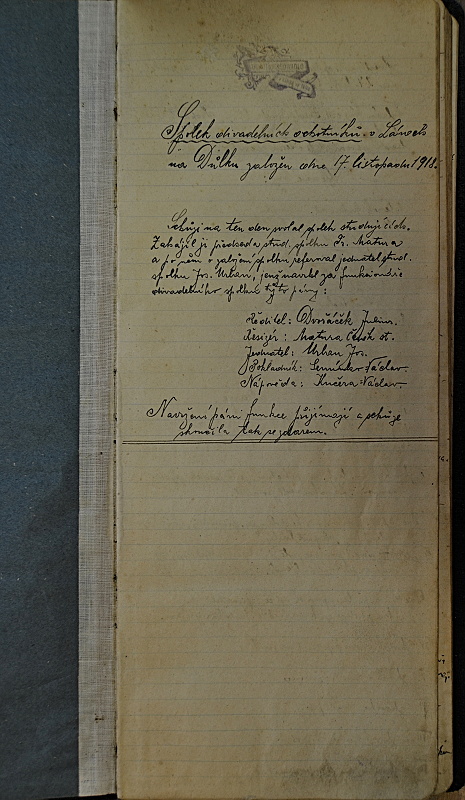 Spolek divadelních ochotníků v Lánech
na Důlku založen dne 17. listopadu 1918.
Schůzi na ten den svolal spolek studujících.
Zahájil ji předseda stud. spolku Fr. Matura
a po něm o založení spolku referoval jednatel stud.
spolku Jos. Urban, jenž navrhl za funkcionáře
divadelního spolku tyto pány:
Ředitel: Dvořáček Julius.
Režisér: Matura Čeněk st.
Jednatel: Urban Jos.
Pokladník: Václav
Nápověda: Kučera Václav
Navržení páni funkce přijímají a schůze
skončila tak se zdarem.